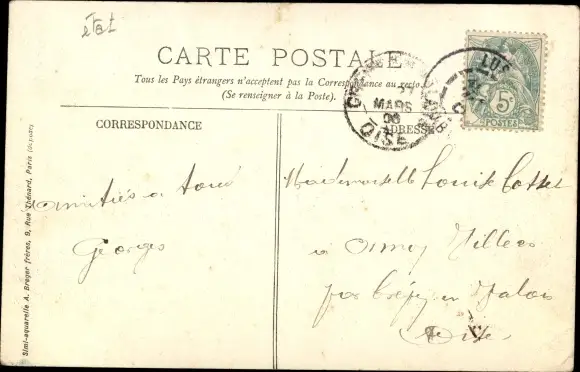 état
CARTE POSTALE
Tous les Pays étrangers n'acceptent pas la Correspondance au recto
(Se renseigner à la Poste).
CORRESPONDANCE
ADRESSE
MARS
OISE
5c
POSTES
Amitiés a tous
Georges
Mademoiselle Louise Cottet
a Ormoy Villers
par Crépy en Valois
Oise
Simi-aquarelle A. Breger frères, 9, Rue Thénard, Paris (déposé)